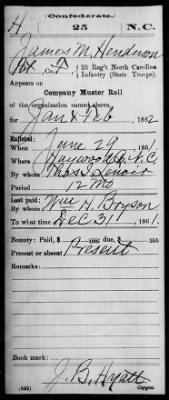 Confederate.
H 25 N.C.
James M. Henderson
Pvt, Co. F, 25 Reg't North Carolina
Infantry (State Troops)
Appears on
Company Muster Roll
of the organization named above,
for Jan & Feb 1862
Enlisted:
When June 29 1861.
Where Haywood Co. N.C.
By whom Thos. I. Lenoir
Period 12 Mo
Last paid:
By whom Wm H. Bryson
To what time Dec 31 1861.
Bounty: Paid, $ 100; due $ 100
Present or absent Present
Remarks:
Book mark:
J. B. Hyatt
(642) Copyist.